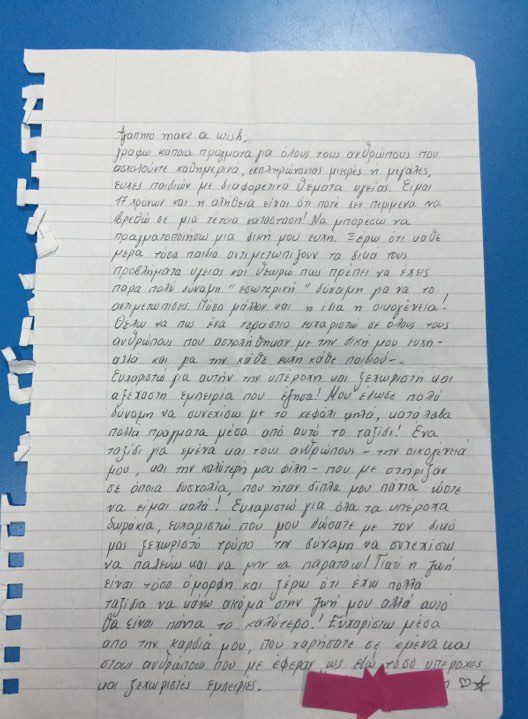 Αγαπητό make a wish,
γράφω κάποια πράγματα για όλους τους ανθρώπους που
ασχολούντε καθημερινά, εκπληρώνοντας μικρές ή μεγάλες,
ευχές παιδιών με διαφορετικά θέματα υγείας. Είμαι
17 χρονών και η αλήθεια είναι ότι ποτέ δεν περίμενα να
βρεθώ σε μια τέτοια κατάσταση! Να μπορέσω να
πραγματοποιήσω μια δική μου ευχή. Ξέρω ότι κάθε
μέρα τόσα παιδιά αντιμετωπίζουν τα δικά τους
προβλήματα υγείας και θεωρώ πως πρέπει να έχεις
πάρα πολύ δύναμη "εσωτερική" δύναμη για να το
αντιμετωπίσεις. Πόσο μάλλον και η ίδια η οικογένεια!
Θέλω να πω ένα τεράστιο ευχαριστώ σε όλους τους
ανθρώπους που ασχολήθηκαν με την δική μου ευχή -
αλλά και για την κάθε ευχή κάθε παιδιού -.
Ευχαριστώ για αυτήν την υπέροχη και ξεχωριστή και
αξέχαστη εμπειρία που έζησα! Μου έδωσε πολύ
δύναμη να συνεχίσω με το κεφάλι ψηλά, κατάλαβα
πολλά πράγματα μέσα από αυτό το ταξίδι! Ένα
ταξίδι για εμένα και τους ανθρώπους - την οικογένειά
μου, και την καλύτερή μου φίλη - που με στήριξαν
σε όποια δυσκολία, που ήταν δίπλα μου πάντα ώστε
να είμαι καλά! Ευχαριστώ για όλα τα υπέροχα
δωράκια, ευχαριστώ που μου δώσατε με τον δικό
μας ξεχωριστό τρόπο την δύναμη να συνεχίσω
να παλεύω και να μην τα παρατάω! Γιατί η ζωή
είναι τόσο όμορφη και ξέρω ότι έχω πολλά
ταξίδια να κάνω ακόμα στην ζωή μου αλλά αυτό
θα είναι πάντα το καλύτερο! Ευχαριστώ μέσα
από την καρδιά μου, που χαρήσατε σε εμένα και
στους ανθρώπους που με έφεραν ως εδώ τόσο υπέροχες
και ξεχωριστές εμπειρίες.